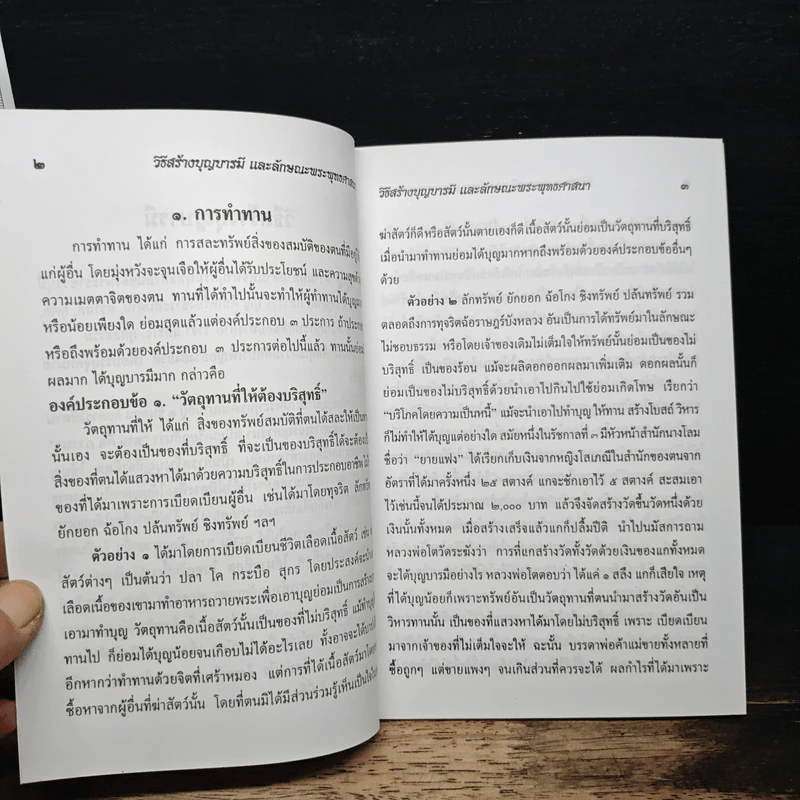 ๒ วิธีสร้างบุญบารมี และลักษณะพระพุทธศาสนา
๑. การทำทาน
การทำทาน ได้แก่ การสละทรัพย์สิ่งของสมบัติของตนที่มีอยู่ให้
แก่ผู้อื่น โดยมุ่งหวังจะจุนเจือให้ผู้อื่นได้รับประโยชน์ และความสุขด้วย
ความเมตตาจิตของตน ทานที่ได้ทำไปนั้นจะทำให้ผู้ทำทานได้บุญมาก
หรือน้อยเพียงใด ย่อมสุดแล้วแต่องค์ประกอบ ๓ ประการ ถ้าประกอบ
หรือถึงพร้อมด้วยองค์ประกอบ ๓ ประการต่อไปนี้แล้ว ทานนั้นย่อมมี
ผลมาก ได้บุญบารมีมาก กล่าวคือ
องค์ประกอบข้อ ๑. “วัตถุทานที่ให้ต้องบริสุทธิ์”
วัตถุทานที่ให้ ได้แก่ สิ่งของทรัพย์สมบัติที่ตนได้สละให้เป็นทาน
นั้นเอง จะต้องเป็นของที่บริสุทธิ์ ที่จะเป็นของบริสุทธิ์ได้จะต้องเป็น
สิ่งของที่ตนได้แสวงหาได้มาด้วยความบริสุทธิ์ในการประกอบอาชีพ ไม่ใช่
ของที่ได้มาเพราะการเบียดเบียนผู้อื่น เช่นได้มาโดยทุจริต ลักทรัพย์
ยักยอก ฉ้อโกง ปล้นทรัพย์ ชิงทรัพย์ ฯลฯ
ตัวอย่าง ๑ ได้มาโดยการเบียดเบียนชีวิตเลือดเนื้อสัตว์ เช่น
สัตว์ต่างๆ เป็นต้นว่า ปลา โค กระบือ สุกร โดยประสงค์จะ
เลือดเนื้อของเขามาทำอาหารถวายพระเพื่อเอาบุญย่อมเป็นการสร้าง
เอามาทำบุญ วัตถุทานคือเนื้อสัตว์นั้นเป็นของที่ไม่บริสุทธิ์ แม้ทำบุญ
ทานไป ก็ย่อมได้บุญน้อยจนเกือบไม่ได้อะไรเลย ทั้งอาจจะได้บาป
อีกหากว่าทำทานด้วยจิตที่เศร้าหมอง แต่การที่ได้เนื้อสัตว์มาโดย
ซื้อหาจากผู้อื่นที่ฆ่าสัตว์นั้น โดยที่ตนมิได้มีส่วนร่วมรู้เห็นเป็นใจใน
วิธีสร้างบุญบารมี และลักษณะพระพุทธศาสนา ๓
ฆ่าสัตว์ก็ดีหรือสัตว์นั้นตายเองก็ดี เนื้อสัตว์นั้นย่อมเป็นวัตถุทานที่บริสุทธิ์
เมื่อนำมาทำทานย่อมได้บุญมากหากถึงพร้อมด้วยองค์ประกอบข้ออื่นๆ
ด้วย
ตัวอย่าง ๒ ลักทรัพย์ ยักยอก ฉ้อโกง ชิงทรัพย์ ปล้นทรัพย์ รวม
ตลอดถึงการทุจริตฉ้อราษฎร์บังหลวง อันเป็นการได้ทรัพย์มาในลักษณะ
ไม่ชอบธรรม หรือโดยเจ้าของเดิมไม่เต็มใจให้ทรัพย์นั้นย่อมเป็นของไม่
บริสุทธิ์ เป็นของร้อน แม้จะผลิดอกออกผลมาเพิ่มเติม ดอกผลนั้นก็
ย่อมเป็นของไม่บริสุทธิ์ด้วยนำเอาไปกินไปใช้ย่อมเกิดโทษ เรียกว่า
“บริโภคโดยความเป็นหนี้” แม้จะนำเอาไปทำบุญ ให้ทาน สร้างโบสถ์ วิหาร
ก็ไม่ทำให้ได้บุญแต่อย่างใด สมัยหนึ่งในรัชกาลที่ ๓ มีหัวหน้าสำนักนางโลม
ชื่อว่า “ยายแฟง” ได้เรียกเก็บเงินจากหญิงโสเภณีในสำนักของตนจาก
อัตราที่ได้มาครั้งหนึ่ง ๒๕ สตางค์ แกจะชักเอาไว้ ๕ สตางค์ สะสมเอา
ไว้เช่นนี้จนได้ประมาณ ๒,๐๐๐ บาท แล้วจึงจัดสร้างวัดขึ้นวัดหนึ่งด้วย
เงินนั้นทั้งหมด เมื่อสร้างเสร็จแล้วแกก็ปลื้มปีติ นำไปนมัสการถาม
หลวงพ่อโตวัดระฆังว่า การที่แกสร้างวัดทั้งวัดด้วยเงินของแกทั้งหมด
จะได้บุญบารมีอย่างไร หลวงพ่อโตตอบว่า ได้แค่ ๑ สลึง แกก็เสียใจ เหตุ
ที่ได้บุญน้อยก็เพราะทรัพย์อันเป็นวัตถุทานที่ตนนำมาสร้างวัดอันเป็น
วิหารทานนั้น เป็นของที่แสวงหาได้มาโดยไม่บริสุทธิ์ เพราะ เบียดเบียน
มาจากเจ้าของที่ไม่เต็มใจจะให้ ฉะนั้น บรรดาพ่อค้าแม่ขายทั้งหลายที่
ซื้อถูกๆ แต่ขายแพงๆ จนเกินส่วนที่ควรจะได้ ผลกำไรที่ได้มาเพราะ